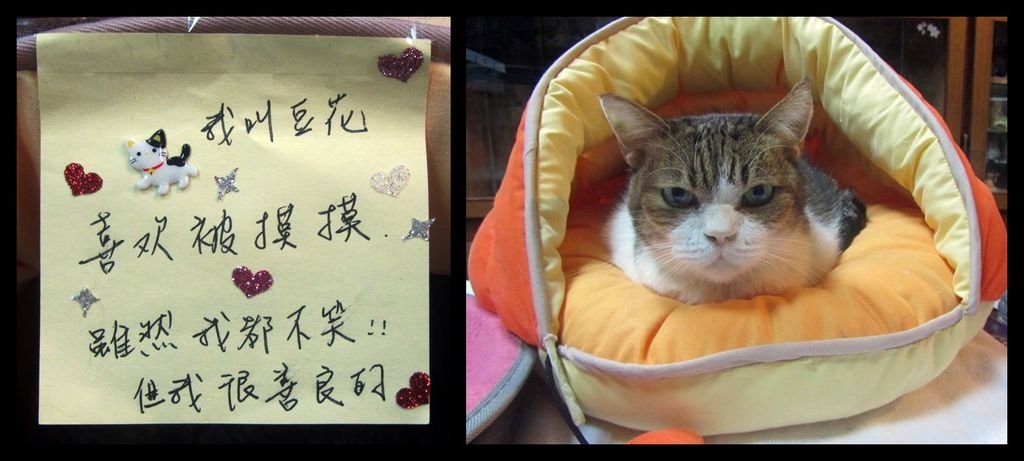 我叫豆花
喜欢被摸摸.
雖然我都不笑!!
但我很善良的